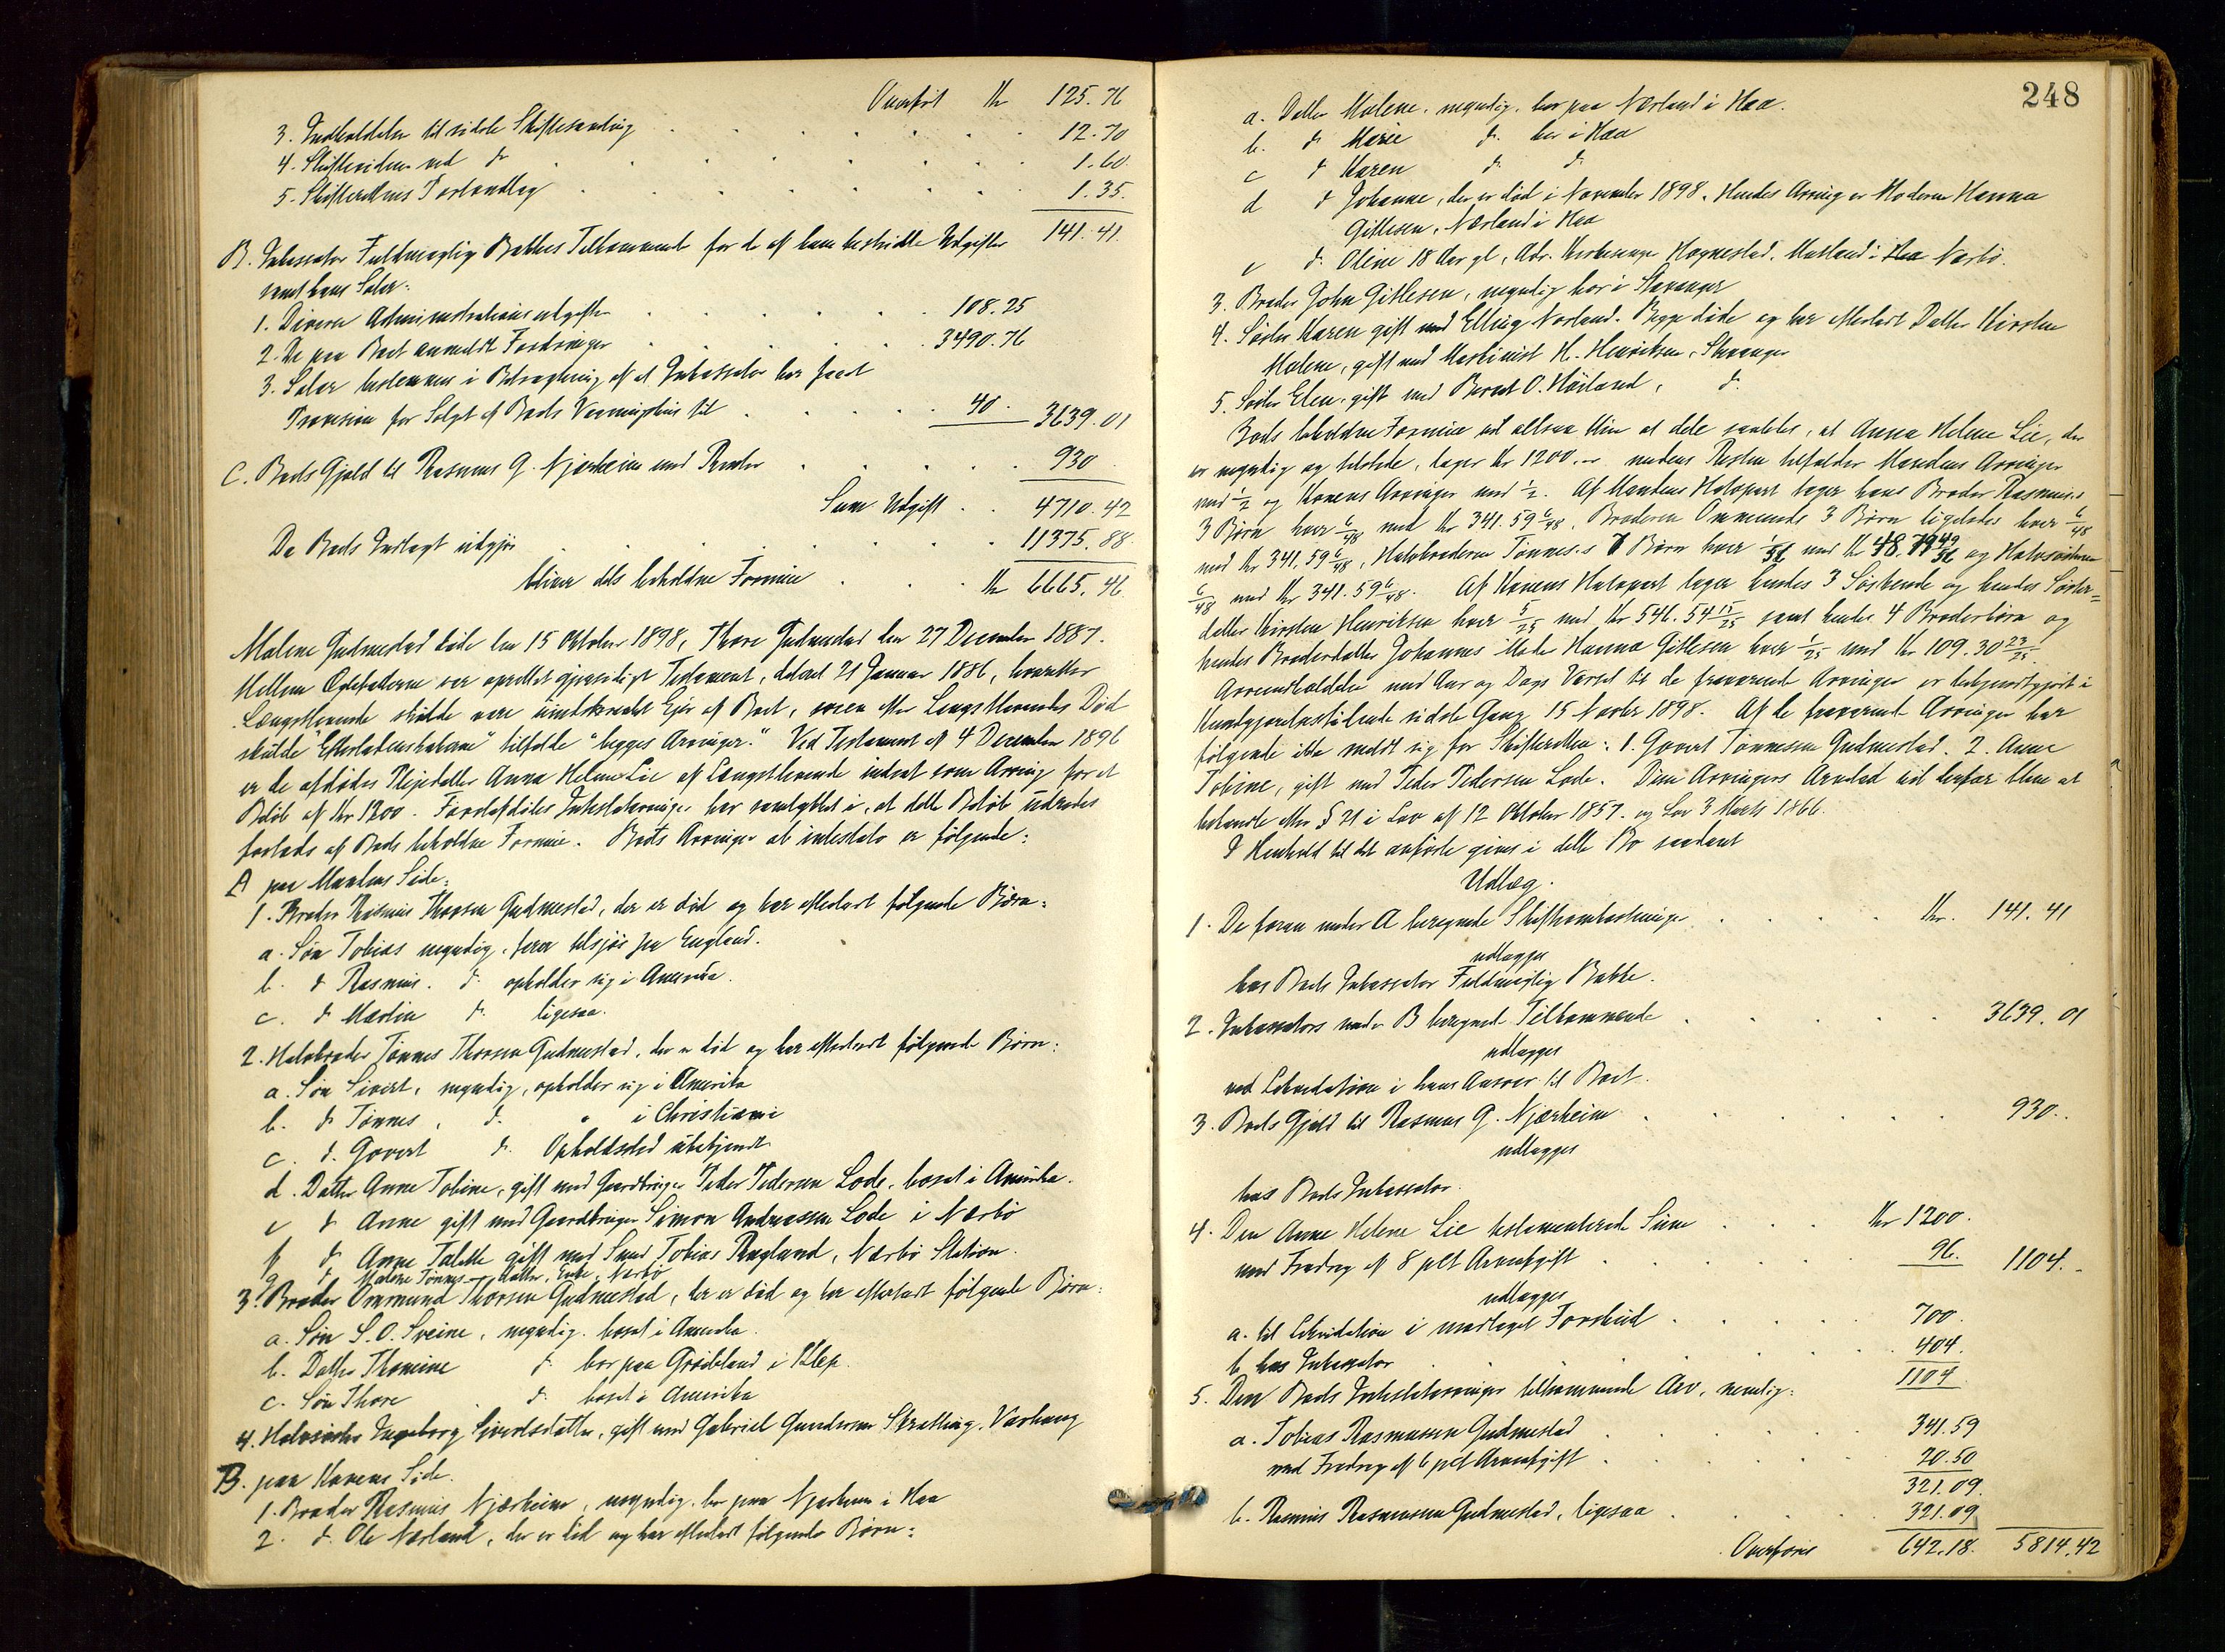 Overført Kr 125.76
3. Indkaldelse til sidste Skiftesamling 12.70
4. Skiftevidner ved do 1.60
5. Skifterettens Forlandlag 1.35.
141.41.
B. Inkassator Fuldmægtig Bakkes Tilkommende for de af ham bestridte Udgifter
samt hans Salær:
1. Diverse Administrationsutgifter 108.25
2. De paa Boet anmeldte Fordringer 3490.76
3. Salær bestemmes i Betragtning af at Inkassator har faaet
Provision for Salget af Boets Vaaningshus til 40. 3639.01
C. Boets Gjæld til Rasmus G. Njærheim med Renter 930
Sum Udgift 4710.42
Da Boets Indtægt udgjør 11375.88
bliver dets beholdne Formue Kr 6665.46
Malene Gudmestad døde den 15 Oktober 1898, Thore Gudmestad den 27 December 1887.
Mellem Ægtefællerne var oprettet gjensidigt Testament, dateret 21 Januar 1886, hvorefter
Længstlevende skulde være uindskrænket Ejer af Boet, mens efter Længstlevendes Død
skulde "Efterladenskaberne" tilfalde "begges Arvinger." Ved Testament af 4 December 1896
er de afdødes Plejedatter Anna Helene Lie af Længstlevende indsat som Arving for et
Beløb af Kr 1200. Førstafdødes Intestatarvinger har samtykket i, at dette Beløb udredes
forlods af Boets beholdne Formue. Boets Arvinger ab intestato er følgende:
A paa Mandens Side:
1. Broder Rasmus Thorsen Gudmestad, der er død og har efterladt følgende Børn:
a. Søn Tobias myndig, farer tilsjøs fra England.
b. do Rasmus. do opholder sig i Amerika.
c. do Martin do ligesaa.
2. Halvbroder Tønnes Thorsen Gudmestad, der er død og har efterladt følgende Børn:
a. Søn Sivert, myndig, opholder sig i Amerika
b. do Tønnes, do " i Christiania
c. do. Govert do Opholdssted ubekjendt
d. Datter Anne Tobine, gift med Gaardbruger Peder Pedersen Lode, bosat i Amerika.
e do Anne gift med Gaardbruger Simon Andreassen Lode i Nærbø
f do Anne Talette gift med Smed Tobias Ragland, Nærbø Station.
g do Malene Tønnesdatter, Enke, Nærbø
3. Broder Ommund Thorsen Gudmestad, der er død og har efterladt følgende Børn:
a. Søn S. O. Sveine, myndig. bosat i Amerika.
b. Datter Thomine do bor paa Grødeland i Klep.
c. Søn Thore do bosat i Amerika
4. Halvsøster Ingeborg Sjvertsdatter, gift med Gabriel Gundersen Skratling, Varhaug
B. paa Konens Side.
1. Broder Rasmus Njærheim, myndig, bor paa Njærheim i Haa
2. do. Ole Nærland, der er død og har efterladt følgende Børn:
248
a. Datter Malene, myndig, bor paa Nærland i Haa.
b. do Marie do bor i Haa
c do Karen do do
d do Johanne, der er død i November 1898. Hendes Arving er Moderen Hanna
Gitlesen, Nærland i Haa
e do Oline 18 Aar gl, Adr. Kirkesanger Hognestad, Matland i Haa Nærbø.
3. Broder John Gitlesen, myndig bor i Stavanger
4. Søster Karen gift med Elling Nærland. Begge døde og har efterladt Datter Kirsten
Malene, gift med Maskinist H. Henriksen, Stavanger
5. Søster Elen, gift med Berent O. Høiland, do
Boets beholdne Formue vil altsaa blive at dele saaledes, at Anna Helene Lie, der
er myndig og tilstede, tager Kr 1200.- medens Resten tilfalder Mandens Arvinger
med 1/2 og Konens Arvinger med 1/2. Af Mandens Halvpart tager hans Broder Rasmus.s
3 Børn hver 6/48 med Kr 341.59 6/48, Broderen Ommunds 3 Børn ligeledes hver 6/48
med Kr 341.59 6/48, Halvbroderen Tønnes.s 7 Børn hver 1/56 med Kr 48.79 42/56 og Halvsøsteren
6/48 med Kr 341.59 6/48. Af Konens Halvpart tager hendes 3 Søskende og hendes Søster=
datter Kirsten Henriksen hver 5/25 med Kr 546.54 15/25 samt hendes 4 Broderbørn og
hendes Broderdatter Johannes Moder Hanna Gitlesen hver 1/25 med Kr 109.30 23/25.
Arveindkaldelse med Aar og Dags Varsel til de fraværende Arvinger er bekjendtgjort i
Kundgjørelsestidende sidste Gang 15 Novbr 1898. Af de fraværende Arvinger har
følgende ikke meldt sig for Skifteretten: 1. Govert Tønnessen Gudmestad. 2. Anne
Tobine, gift med Peder Pedersen Lode. Disse Arvingers Arvelod vil derfor blive at
behandle efter § 21 i Lov af 12 Oktober 1857. og Lov 3 Marts 1866.
I Henhold til det anførte gives i dette Bo saadant
Udlæg.
1. De foran under A beregnede Skifteomkostninger Kr. 141.41
udlægges
hos Boets Inkassator Fuldmægtig Bakke.
2. Inkassators under B beregnede Tilkommende 3639.01
udlægges
ved Likvidation i hans Ansvar til Boet.
3. Boets Gjæld til Rasmus G. Njærheim 930..
udlægges
hos Boets Inkassator.
4. Den Anne Helene Lie testamenterede Sum Kr 1200.
med Fradrag af 8 pCt Arveafgift 96. 1104.-
udlægges
a. til Likvidation i modtaget Forskud 700.
b. hos Inkassator 404.
1104.
5. Den Boets Intestatarvinger tilkommende Arv, nemlig:
a. Tobias Rasmussen Gudmestad 341.59
med Fradrag af 6 pCt Arveafgift 20.50
321.09.
b. Rasmus Rasmussen Gudmestad, ligesaa 321.09
Overføres 642.18. 5814.42